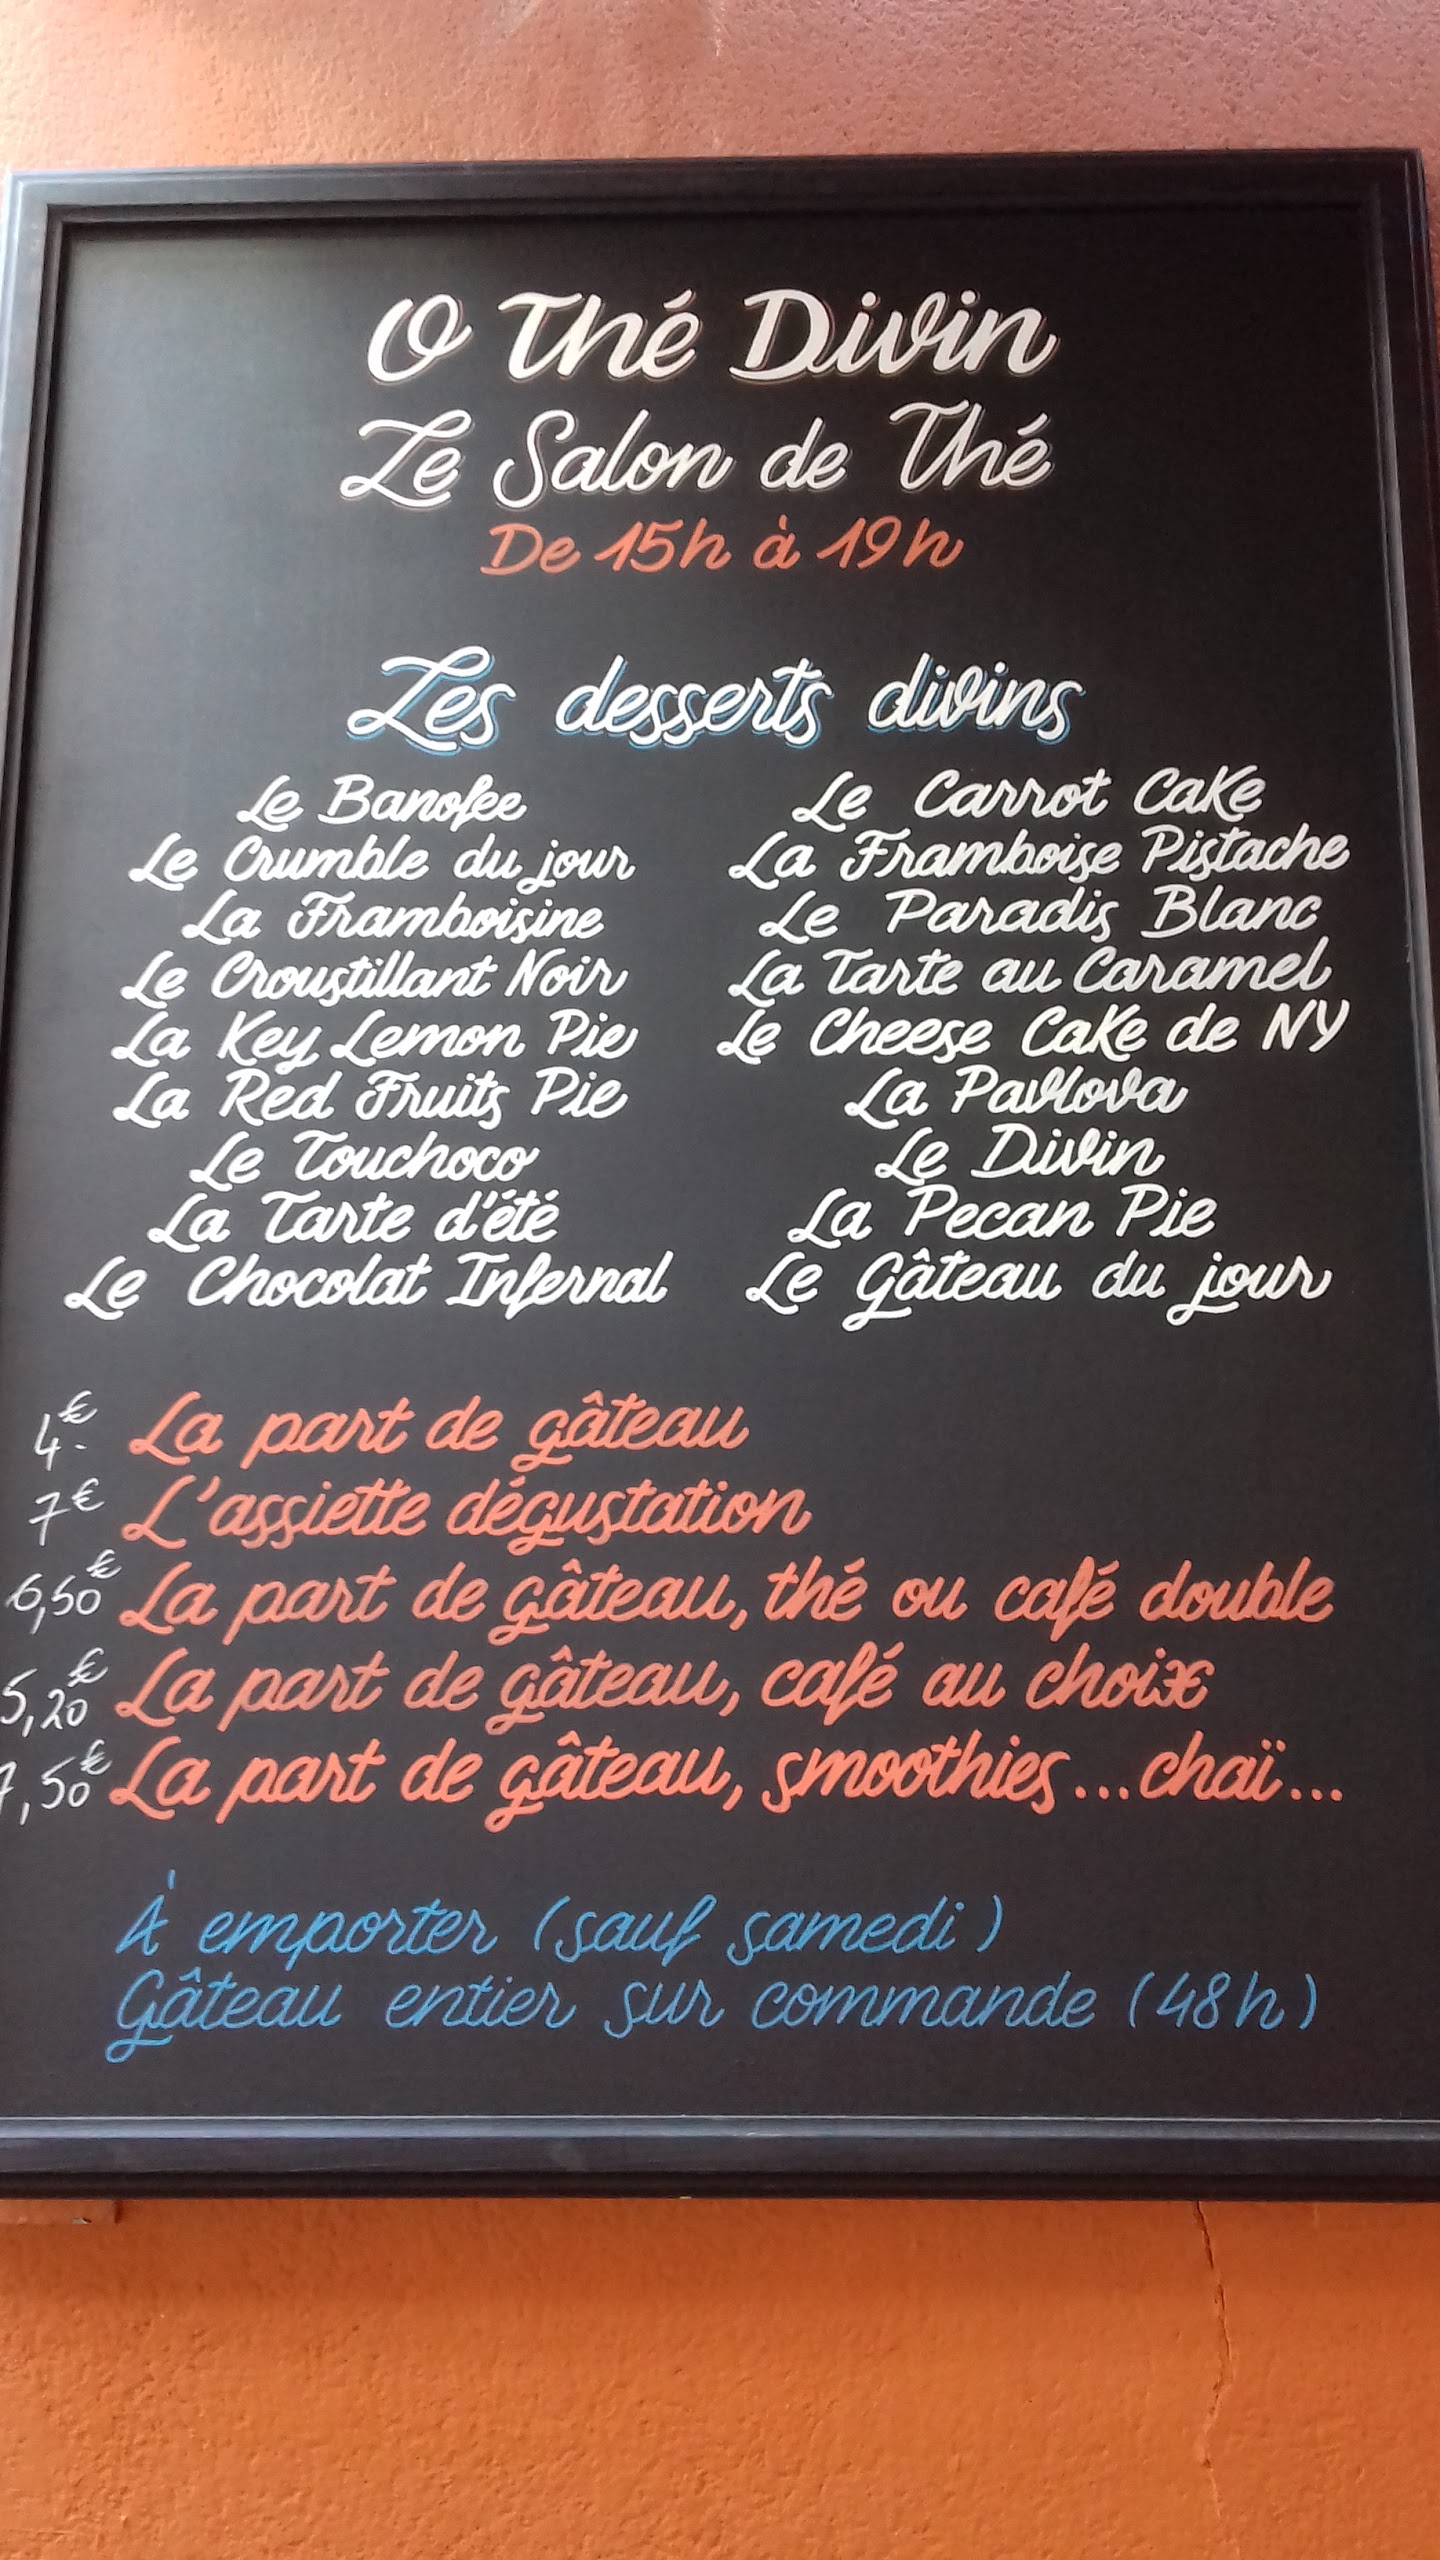 O Thé Divin
Le Salon de Thé
De 15h à 19h
Les desserts divins
Le Banofee
Le Crumble du jour
La Framboisine
Le Croustillant Noir
La Key Lemon Pie
La Red Fruits Pie
Le Touchoco
La Tarte d'été
Le Chocolat Infernal
Le Carrot Cake
La Framboise Pistache
Le Paradis Blanc
La Tarte au Caramel
Le Cheese Cake de NY
La Pavlova
Le Divin
La Pecan Pie
Le Gâteau du jour
4.€ La part de gâteau
7€ L'assiette dégustation
6,50€ La part de gâteau, thé ou café double
5,20€ La part de gâteau, café au choix
7,50€ La part de gâteau, smoothies...chaï...
À emporter (sauf samedi)
Gâteau entier sur commande (48h)